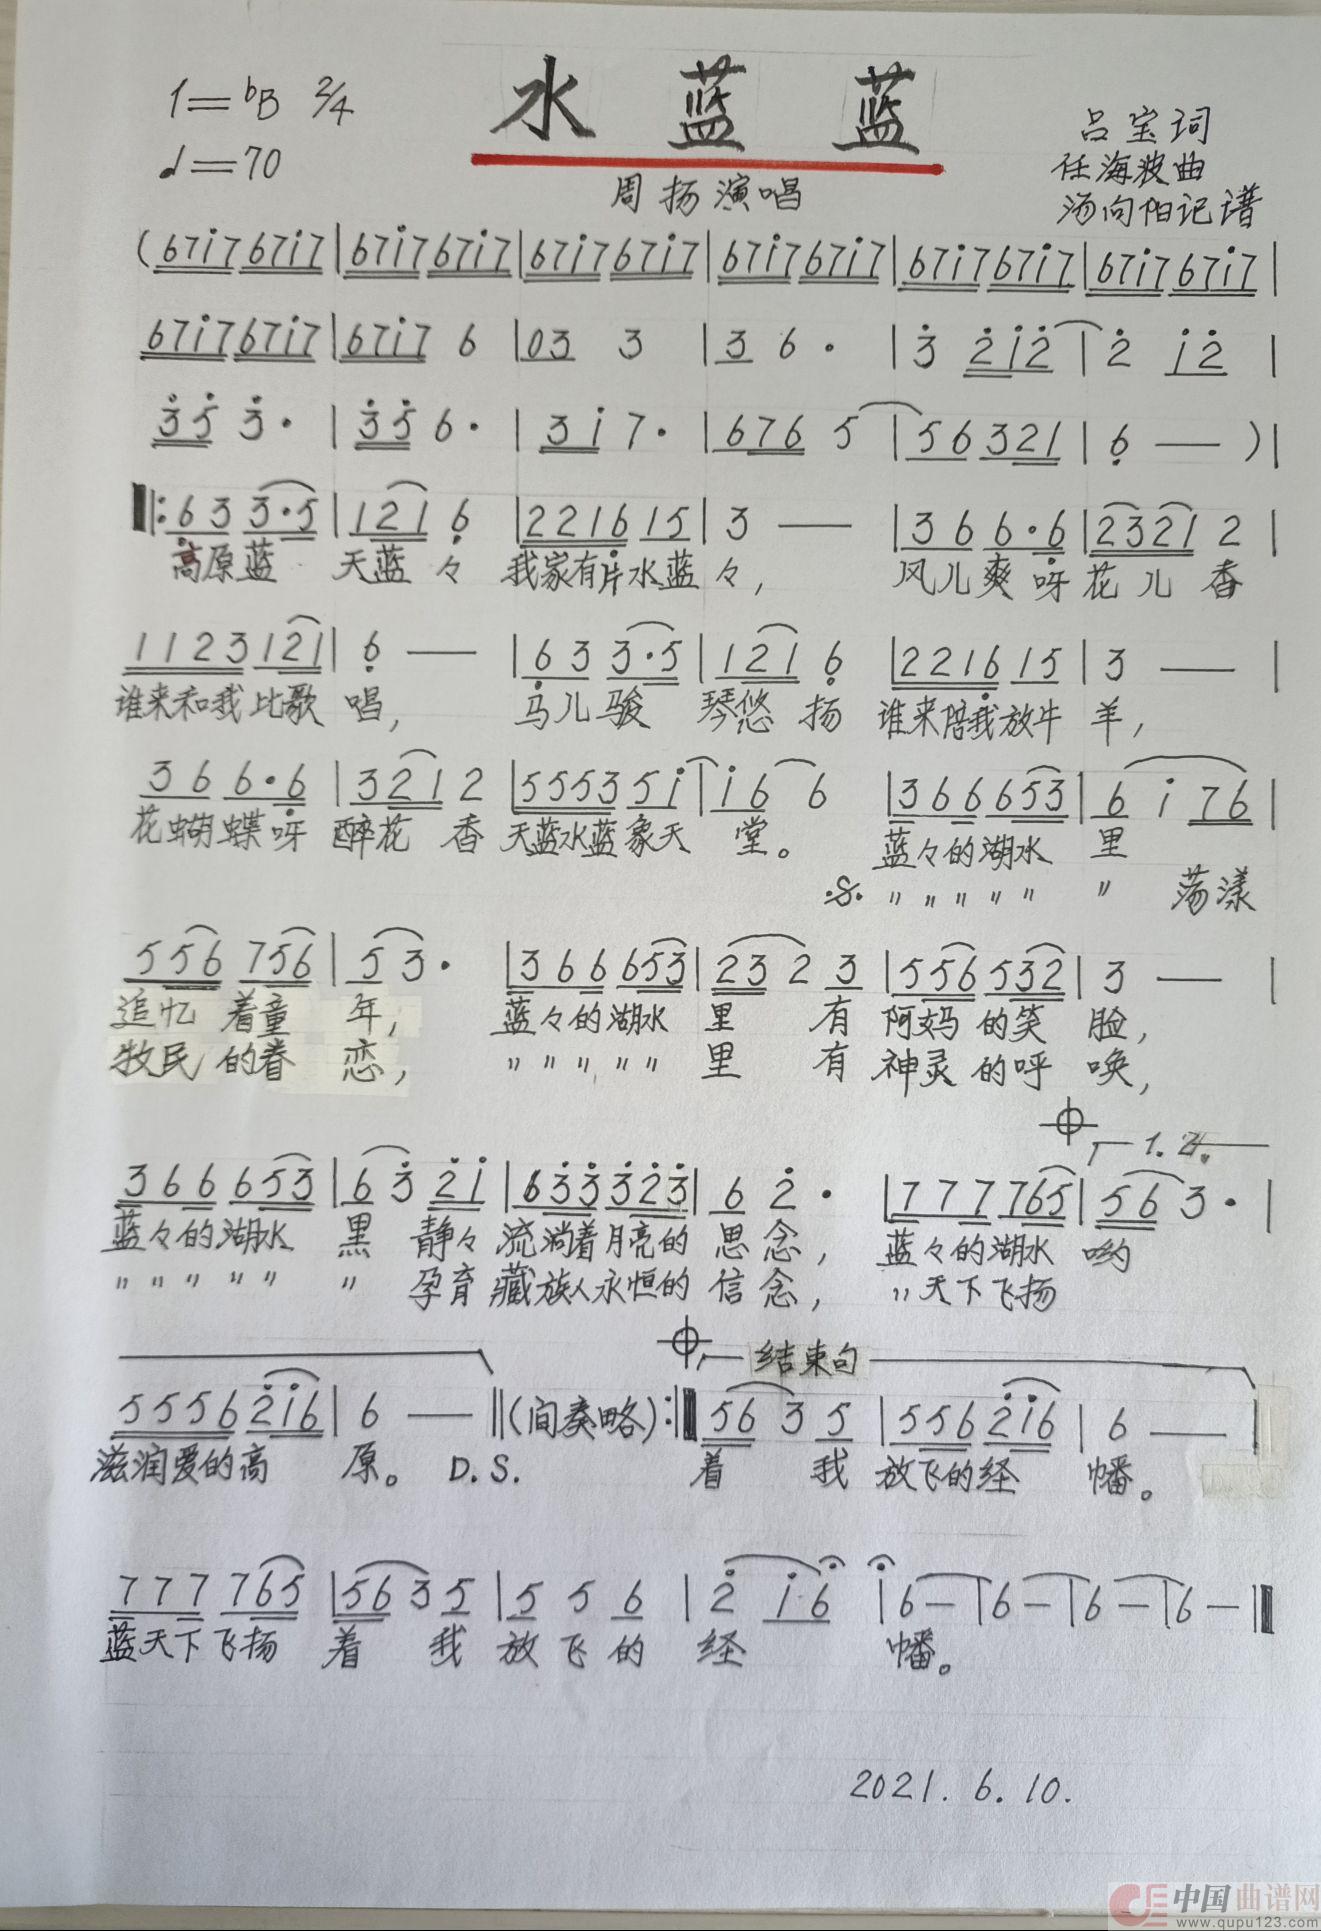 1=bB 2/4
水蓝蓝
♩=70
周扬演唱
吕宝词
任海波曲
汤向阳记谱
(67i7 67i7 | 67i7 67i7 | 67i7 67i7 | 67i7 67i7 | 67i7 67i7 | 67i7 67i7 |
67i7 67i7 | 67i7 6 | 03 3 | 3 6 · | 3 2i2 | 2 i2 |
35 3 · | 35 6 · | 3i 7 · | 676 5 | 56 321 | 6 — ) |
‖: 63 3·5 | 121 6 | 2216 15 | 3 — | 36 6·6 | 2321 2 |
高原蓝 天蓝々 我家有片水蓝々, 风儿爽呀花儿香
1123 121 | 6 — | 63 3·5 | 121 6 | 2216 15 | 3 — |
谁来和我比歌唱, 马儿骏 琴悠扬 谁来陪我放牛羊,
36 6·6 | 321 2 | 5553 5i | i6 6 | 366 653 | 6 i 76 |
花蝴蝶呀 醉花香 天蓝水蓝象天堂。 蓝々的湖水里
·S· 〃〃〃〃〃 〃 荡漾
556 756 | 5 3 · | 366 653 | 23 2 3 | 556 532 | 3 — |
追忆着童年, 蓝々的湖水里有阿妈的笑脸,
牧民的眷恋, 〃〃〃〃〃里有神灵的呼唤,
1. 2.
366 653 | 6 3 2i | 633 323 | 6 2 · | 777 765 | 56 3 · |
蓝々的湖水黑静々流淌着月亮的思念, 蓝々的湖水哟
〃〃〃〃〃 〃 孕育藏族人永恒的信念, 〃天下飞扬
结束句
5556 2i6 | 6 — ‖ (间奏略) :‖ 56 3 5 | 556 2i6 | 6 — |
滋润爱的高原。 D.S. 着我放飞的经幡。
777 765 | 56 3 5 | 5 5 6 | 2 i6 | i 6 — | 6 — | 6 — | 6 — ‖
蓝天下飞扬着我放飞的经幡。
2021.6.10.
中国曲谱网
www.qupu123.com